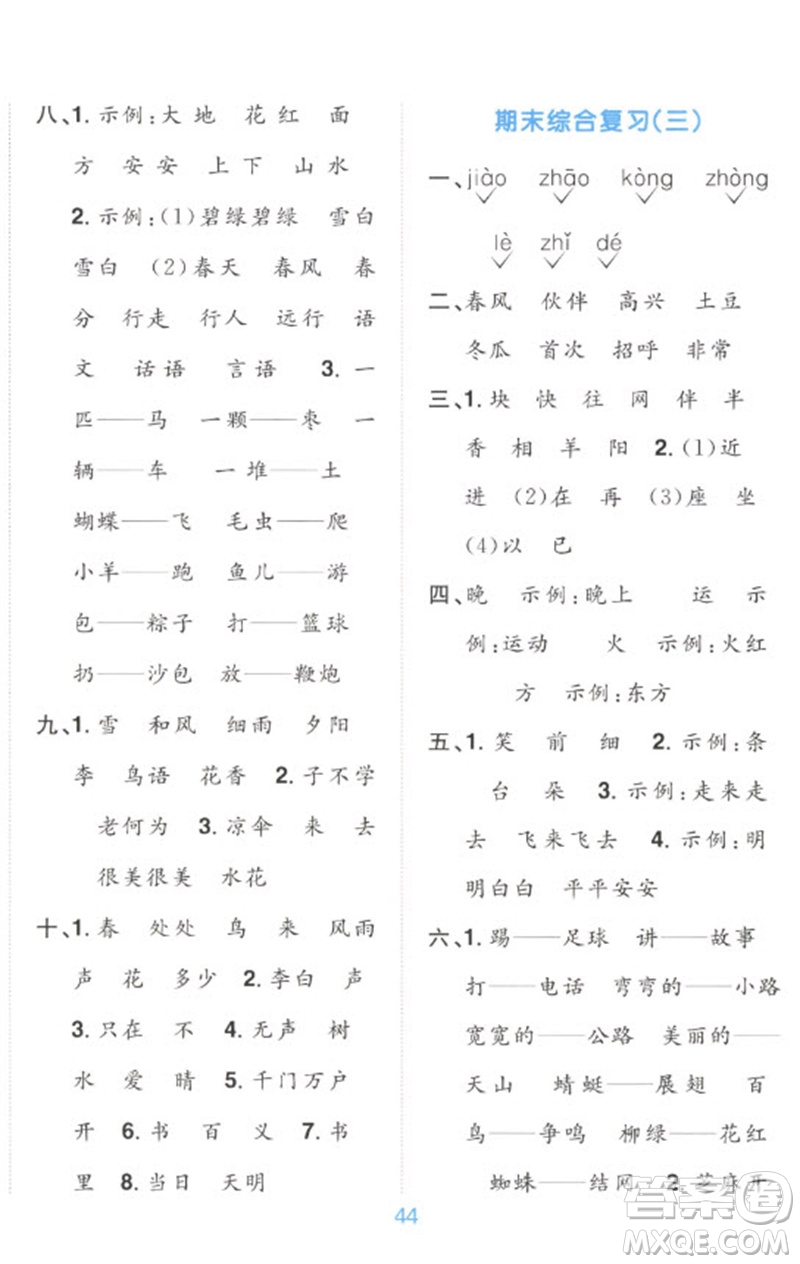 八、1. 示例:大地 花红 面
方 安安 上下 山水
2. 示例:(1)碧绿碧绿 雪白
雪白 (2)春天 春风 春
分 行走 行人 远行 语
文 话语 言语 3. 一
匹——马 一颗——枣 一
辆——车 一堆——土
蝴蝶——飞 毛虫——爬
小羊——跑 鱼儿——游
包——粽子 打——篮球
扔——沙包 放——鞭炮
九、1. 雪 和风 细雨 夕阳
李 鸟语 花香 2. 子不学
老何为 3. 凉伞 来 去
很美很美 水花
十、1. 春 处处 鸟 来 风雨
声 花 多少 2. 李白 声
3. 只在 不 4. 无声 树
水 爱 晴 5. 千门万户
开 6. 书 百 义 7. 书
里 8. 当日 天明
期末综合复习(三)
一、jiào zhāo kòng zhòng
lè zhǐ dé
二、春风 伙伴 高兴 土豆
冬瓜 首次 招呼 非常
三、1. 块 快 往 网 伴 半
香 相 羊 阳 2. (1)近
进 (2)在 再 (3)座 坐
(4)以 已
四、晚 示例:晚上 运 示
例:运动 火 示例:火红
方 示例:东方
五、1. 笑 前 细 2. 示例:条
台 朵 3. 示例:走来走
去 飞来飞去 4. 示例:明
明白白 平平安安
六、1. 踢——足球 讲——故事
打——电话 弯弯的——小路
宽宽的——公路 美丽的——
天山 蜻蜓——展翅 百
鸟——争鸣 柳绿——花红
蜘蛛——结网 2. 芝麻开
44
答案圈